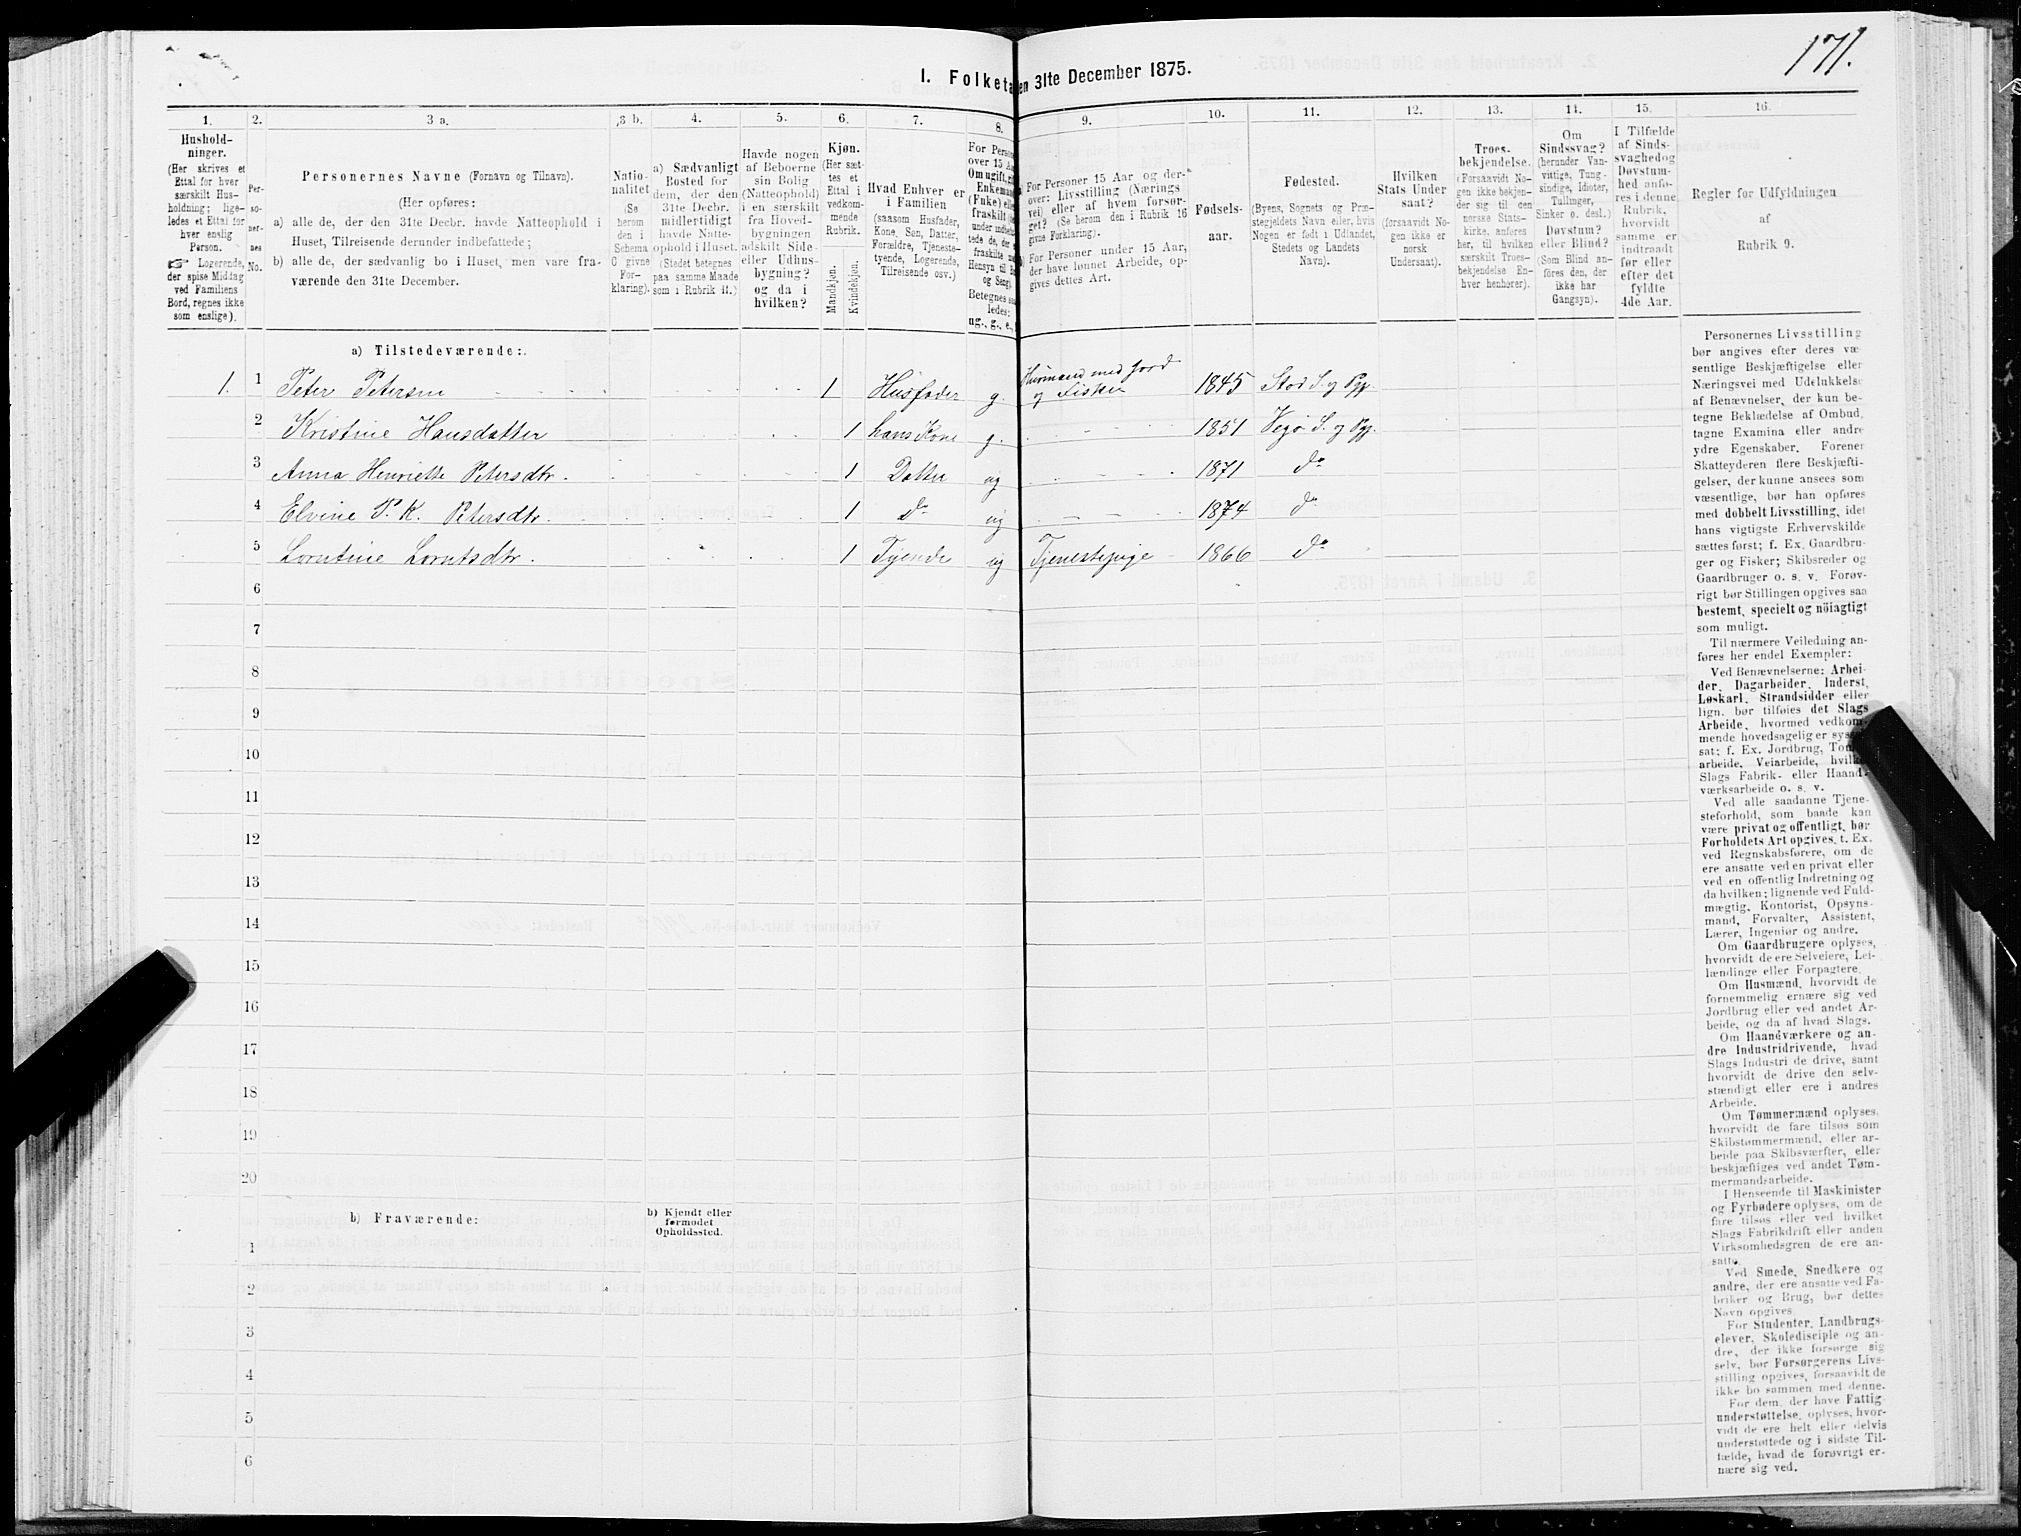 171.
I. Folketa en 31te December 1875.
1.
2.
3 a.
3 b.
4.
5.
6.
7.
8.
9.
10.
11.
12.
13.
14.
15.
16.
Hushold-
ninger.
(Her skrives et
Ettal for hver
særskilt Hus-
holdning; lige-
ledes et Ettal for
hver enslig
Person.
☞ Logerende,
der spise Middag
ved Familiens
Bord, regnes ikke
som enslige).
Per-
so-
ner-
nes
No.
Personernes Navne (Fornavn og Tilnavn).
(Her opføres:
a) alle de, der den 31te Decbr. havde Natteophold i
Huset, Tilreisende derunder indbefattede;
b) alle de, der sædvanlig bo i Huset, men vare fra-
værende den 31te December.
Natio-
nalitet
(Se
herom
den i
Schema
O givne
For-
klaring).
a) Sædvanligt
Bosted for
dem, der den
31te Decbr.
midlertidigt
havde Natte-
ophold i Huset.
(Stedet betegnes
paa samme Maade
som i Rubrik 11.)
Havde nogen
af Beboerne
sin Bolig
(Natteophold)
i en særskilt
fra Hoved-
bygningen
adskilt Side-
eller Udhus-
bygning?
og da i
hvilken?
Kjøn.
(Her sæt-
tes et
Ettal i
vedkom-
mende
Rubrik.
Mandkjøn.
Kvindekjøn.
Hvad Enhver er
i Familien
(saasom Husfader,
Kone, Søn, Datter,
Forældre, Tjeneste-
tyende, Logerende,
Tilreisende osv.)
For Person
over 15 Aa
Om ugift,
Enkemand
(Enke) elle
fraskilt
Betegnes saa
ledes:
ug., g., e.,
For Personer 15 Aar og der-
over: Livsstilling (Nærings
vei) eller af hvem forsør-
get? (Se herom den i Rubrik 16
givne Forklaring).
For Personer under 15 Aar,
der have lønnet Arbeide, op-
gives dettes Art.
Fødsels-
aar.
Fødested.
(Byens, Sognets og Præ-
stegjeldets Navn eller, hvis
Nogen er født i Udlandet,
Stedets og Landets
Navn).
Hvilken
Stats Under
saat?
(forsaavidt No-
gen ikke er
norsk
Undersaat).
Troes-
bekjendelse.
(Forsaavidt No-
gen ikke bekjen-
der sig til den
norske Stats-
kirke, anføres
her, til hvilken
særskilt Troes-
bekjendelse En-
hver henhører).
Om
Sindssvag?
(herunder Van-
vittige, Tung-
sindige, Idioter,
Tullinger,
Sinker o. desl.)
Døvstum?
eller Blind?
(Som Blind an-
føres den, der
ikke har
Gangsyn).
I Tilfælde
af Sinds-
svaghed og
Døvstum-
hed anfø-
res i denne
Rubrik,
hvorvidt
samme er
indtraadt
før eller
efter det
fyldte
4de Aar.
Regler for Udfyldningen
af
Rubrik 9.
a) Tilstedeværende:
1. 1 Peter Petersen 1 Husfader g. Husmand med Jord
og Fisker 1845 Stod S. og Pgj.
2 Kristine Hansdatter 1 hans Kone g. 1851 Vegø S. og Pgj.
3 Anna Henriette Petersdtr. 1 Datter ug 1871 do
4 Elvine P. K. Petersdtr. 1 do ug 1874 do
5 Lorntine Lorntsdtr. 1 Tyende ug Tjenestepige 1866 do
6
7
8
9
10
11
12
13
14
15
16
17
18
19
20
b) Fraværende:
b) Kjendt eller
formodet
Opholdssted.
1
2
3
4
5
6
Personernes Livsstilling
bør angives efter deres væ
sentlige Beskjæftigelse eller
Næringsvei med Udelukkelse
af Benævnelser, der kun be-
tegne Beklædelse af Ombud,
tagne Examina eller andre
ydre Egenskaber. Forener
Skatteyderen flere Beskjæfti-
gelser, der kunne ansees som
væsentlige, bør han opføres
med dobbelt Livsstilling, idet
hans vigtigste Erhvervskilde
sættes først; f. Ex. Gaardbru-
ger og Fisker; Skibsreder og
Gaardbruger o. s. v. Forøv-
rigt bør Stillingen opgives saa
bestemt, specielt og nöiagtigt
som muligt.
Til nærmere Veiledning an-
føres her endel Exempler:
Ved Benævnelserne: Arbei-
der, Dagarbeider, Inderst,
Løskarl, Strandsidder eller
lign. bør tilføies det Slags
Arbeide, hvormed vedkom-
mende hovedsagelig er syssel
sat; f. Ex. Jordbrug, Tom
arbeide, Veiarbeide, hvilke
Slags Fabrik- eller Haand-
værksarbeide o. s. v.
Ved alle saadanne Tjene-
steforhold, som baade kan
være privat og offentligt, bør
Forholdets Art opgives, t. Ex.
ved Regnskabsførere, om de
ere ansatte ved en privat eller
ved en offentlig Indretning og
da hvilken; lignende ved Fuld-
mægtig, Kontorist, Opsyns-
mand, Forvalter, Assistent,
Lærer, Ingeniør og andre.
Om Gaardbrugere oplyses,
hvorvidt de ere Selveiere, Lei-
lændinge eller Forpagtere.
Om Husmænd, hvorvidt de
fornemmelig ernære sig ved
Jordbrug eller ved andet Ar-
beide, og da af hvad Slags.
Om Haandværkere og an-
dre Industridrivende, hvad
Slags Industri de drive, samt
hvorvidt de drive den selv-
stændigt eller ere i andres
Arbeide.
Om Tømmermænd oplyses,
hvorvidt de fare tilsøs som
Skibstømmermænd, eller ar-
beide paa Skibsværfter, eller
beskjæftiges ved andet Tøm-
mermandsarbeide.
I Henseende til Maskinister
og Fyrbødere oplyses, om de
fare tilsøs eller ved hvilket
Slags Fabrikdrift eller anden
Virksomhedsgren de ere an-
satte.
Ved Smede, Snedkere og
andre, der ere ansatte ved Fa-
briker og Brug, bør dettes
Navn opgives.
For Studenter, Landbrugs-
elever, Skoledisciple og an-
dre, der ikke forsørge sig
selv, bør Forsørgerens Livs-
stilling opgives, forsaavidt de
ikke bo sammen med denne.
For dem, der have Fattig-
understøttelse, oplyses, hvor-
vidt de ere helt eller delvis
understøttede og i sidste Til-
fælde, hvad de forøvrigt er-
nære sig ved.